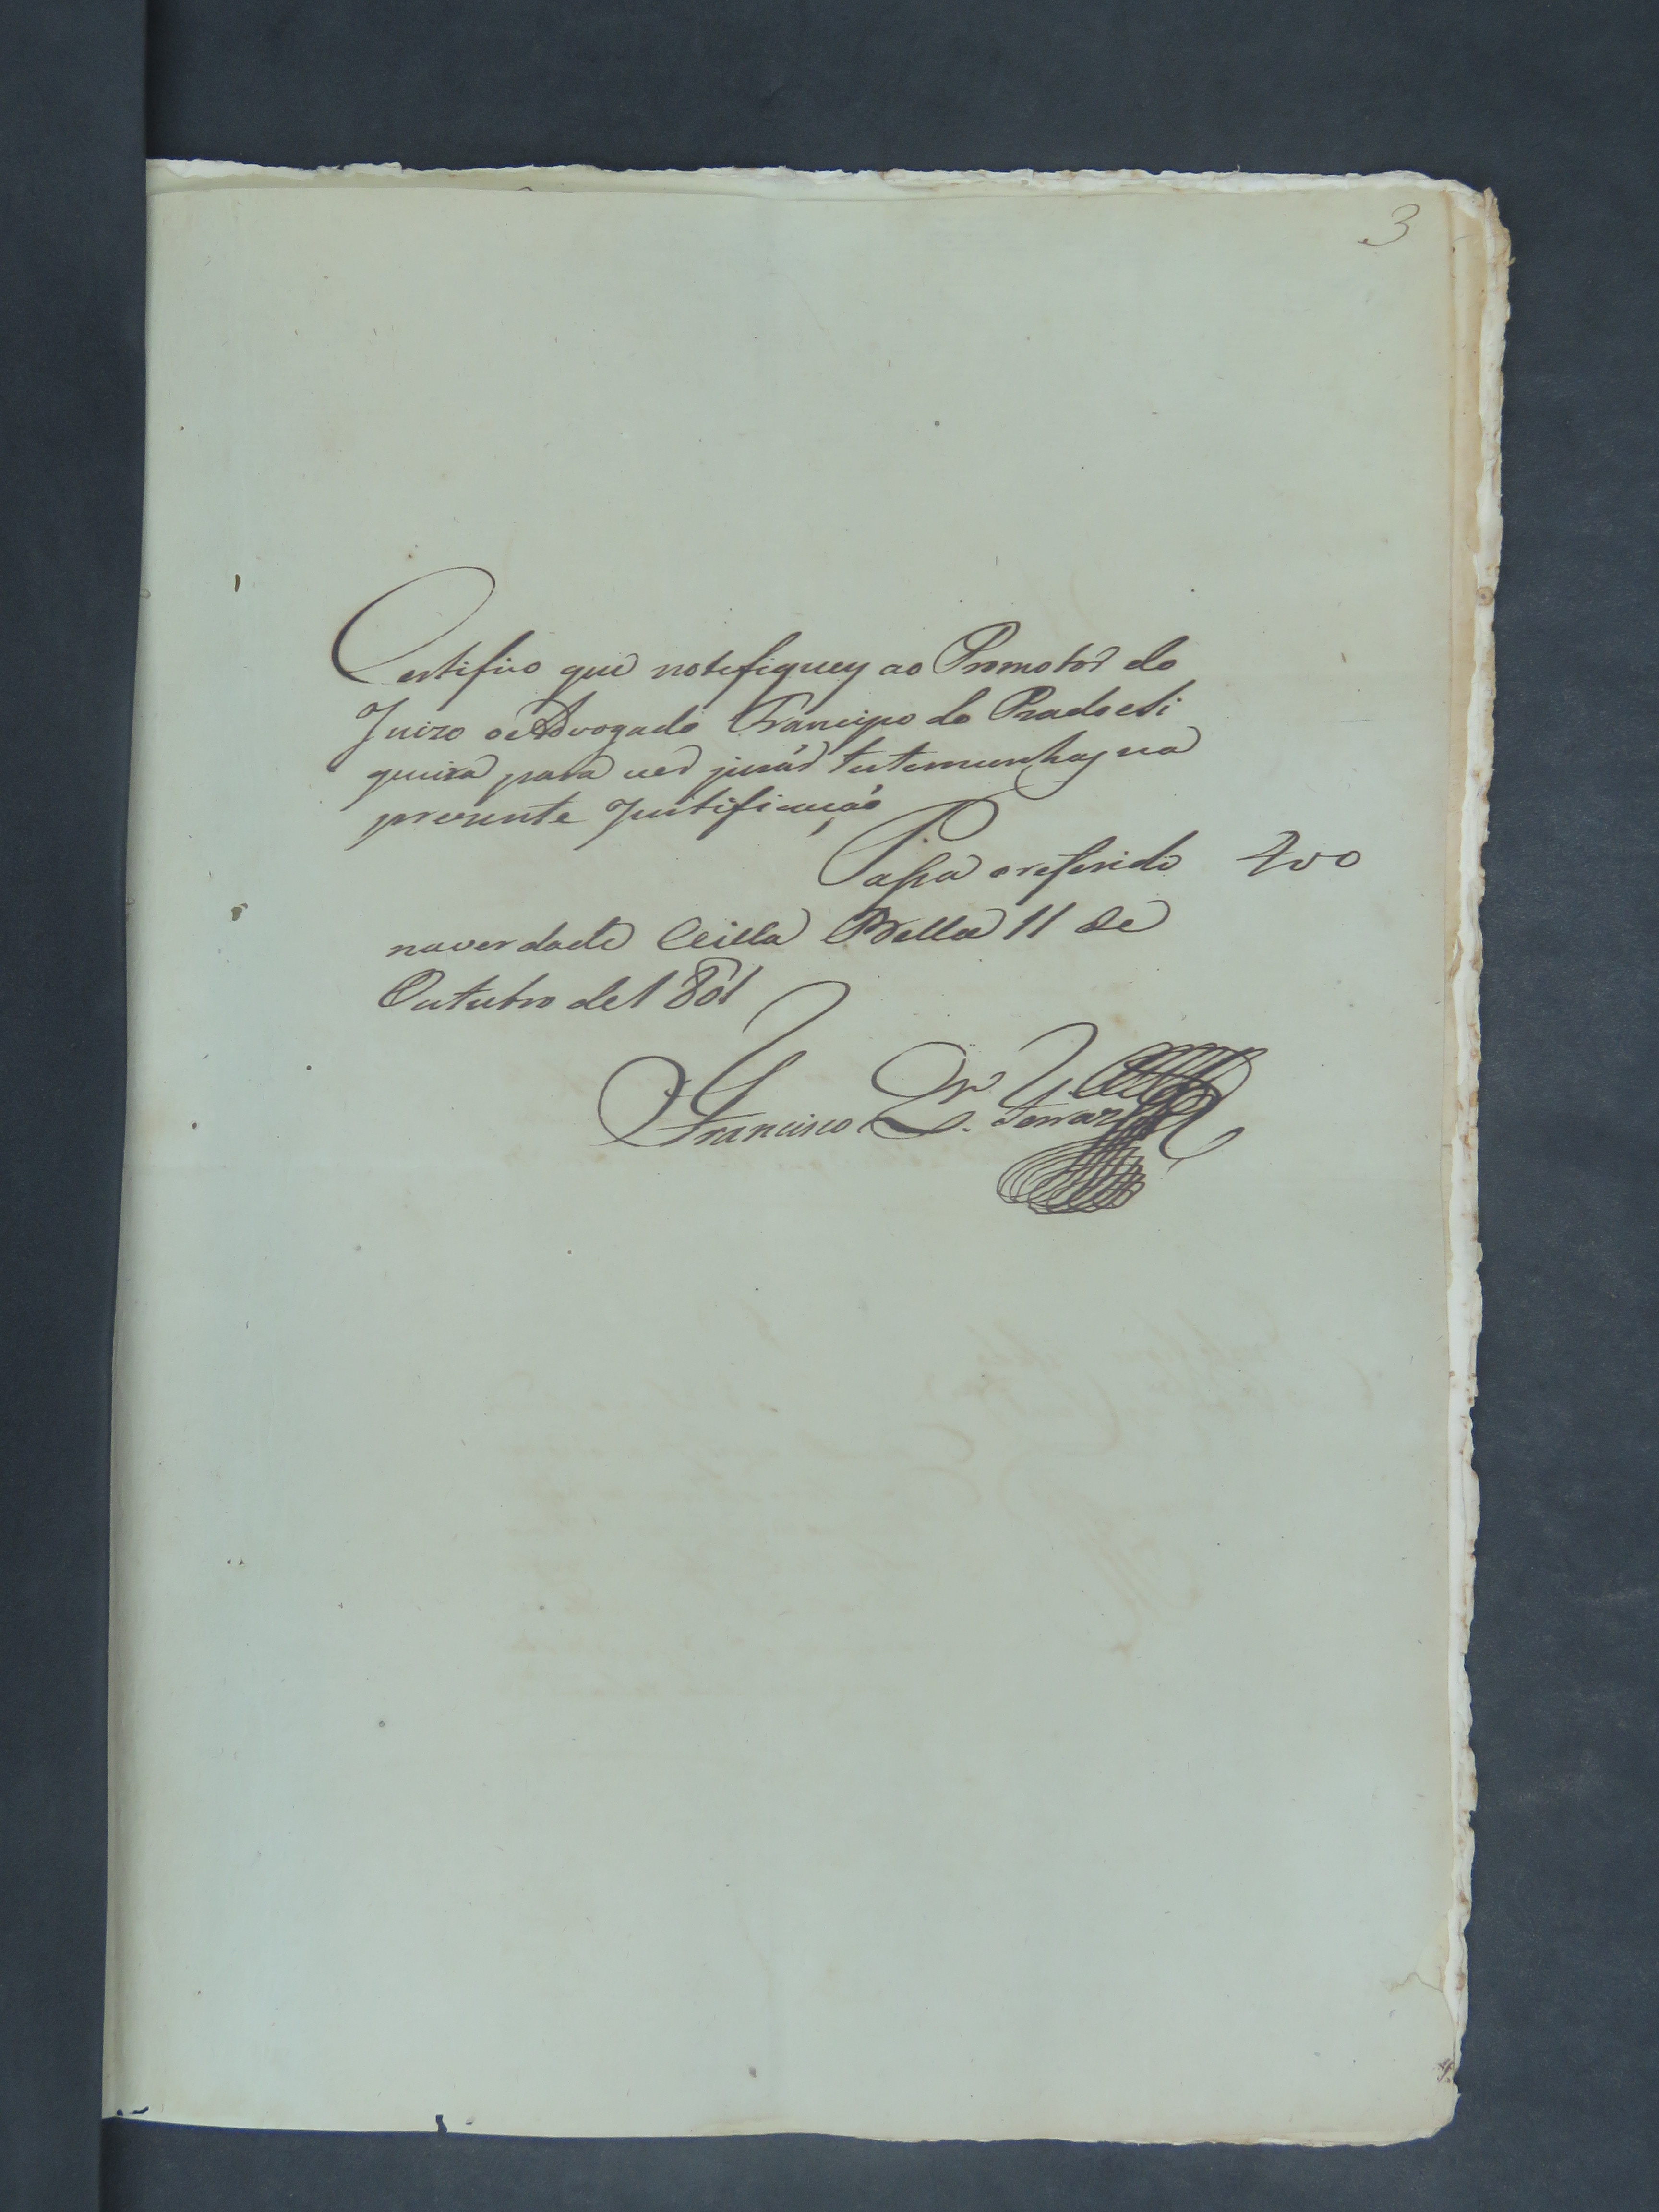 3
Certifico que notefiquey ao Promotor do
Juizo o Advogado Francisco do Prado eSi
queira para ver jurár testemunhas na
prezente Justificação
Passa o referido 400
na verdade Villa Bella 11 de
Outubro de 1801
Francisco X.er Ferraz